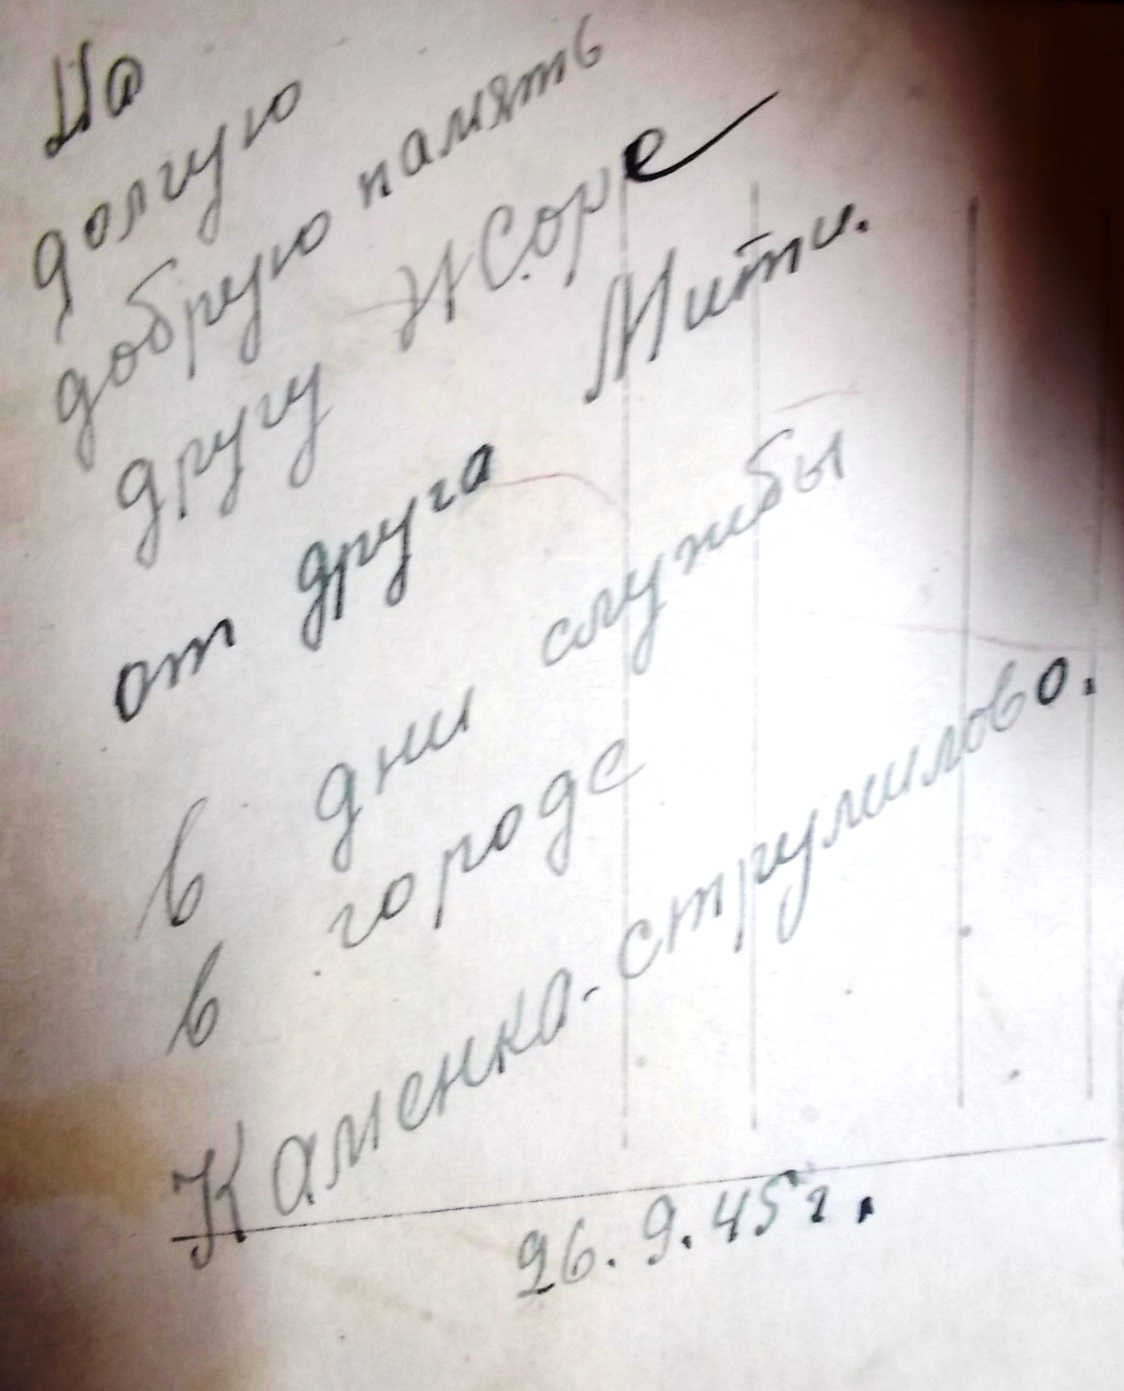 На
долгую
добрую память
другу Жоре
от друга Мити.
в дни службы
в городе
Каменка-струмилово.
26.9.45 г.